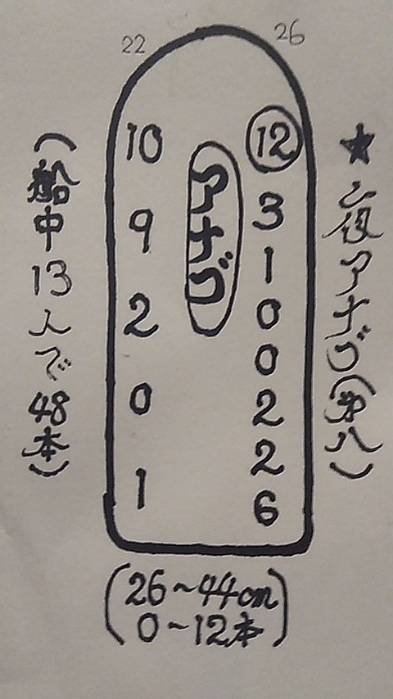 ★夜アナゴ(第八)
22
26
アナゴ
12
3
1
0
0
2
2
6
10
9
2
0
1
(船中13人で48本)
(26~44cm
0~12本)